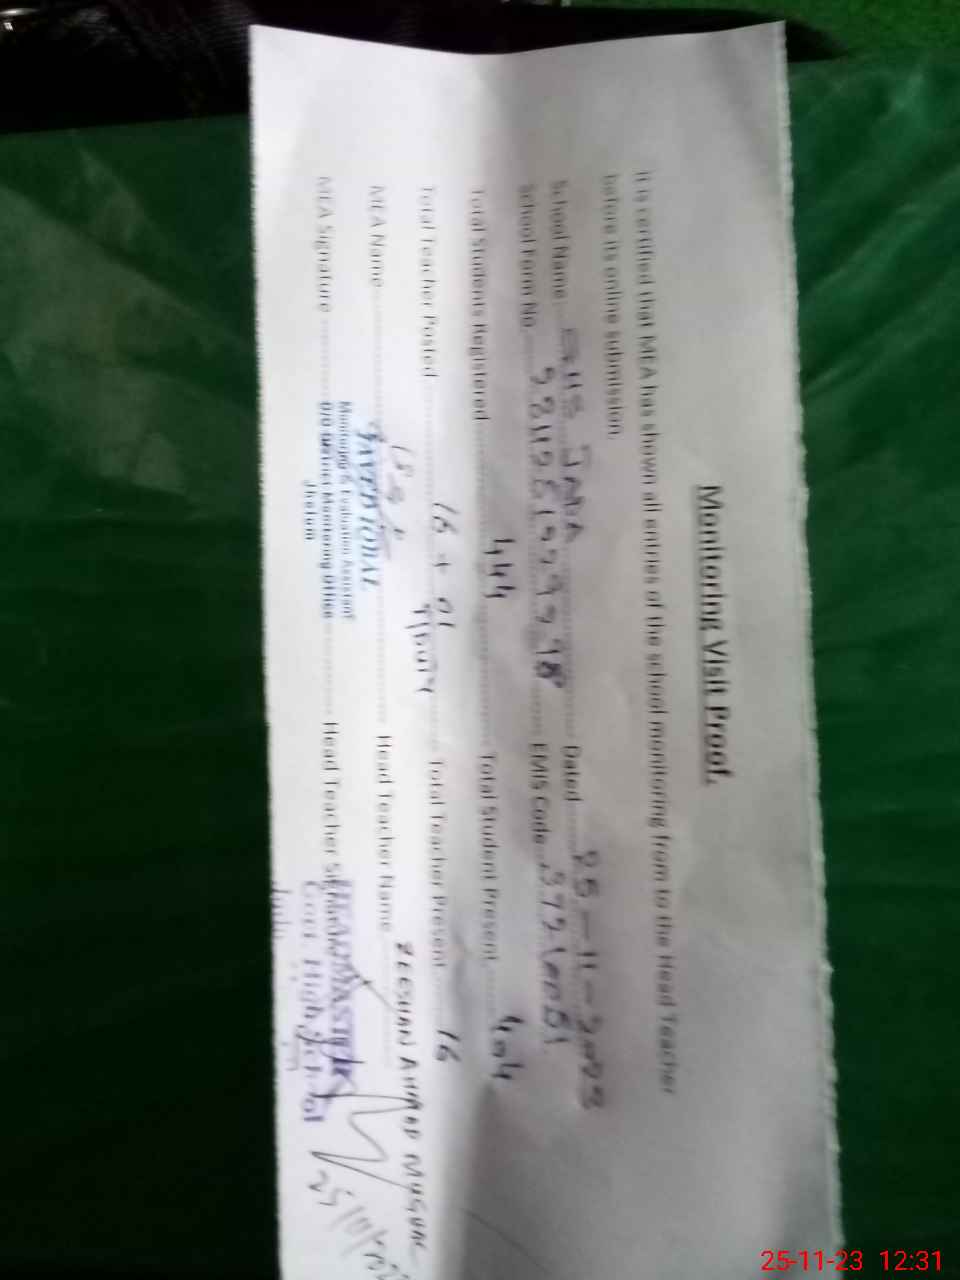 Monitoring Visit Proof.
It is certified that MEA has shown all entries of the school monitoring from to the Head Teacher
before its online submission.
School Name GHS Dated 25-11-2023
School Form No. EMIS Code
Total Students Registered 444 Total Student Present 404
Total Teacher Posted 16 + 01 Total Teacher Present 16
T/DUTY
MEA Name JAVED IQBAL Head Teacher Name ZEESHAN AHMAD
Monitoring & Evaluation Assistant
MEA Signature O/O District Monitoring Office Head Teacher Signature HEADMASTER
Jhelum Govt High School
25-11-23 12:31